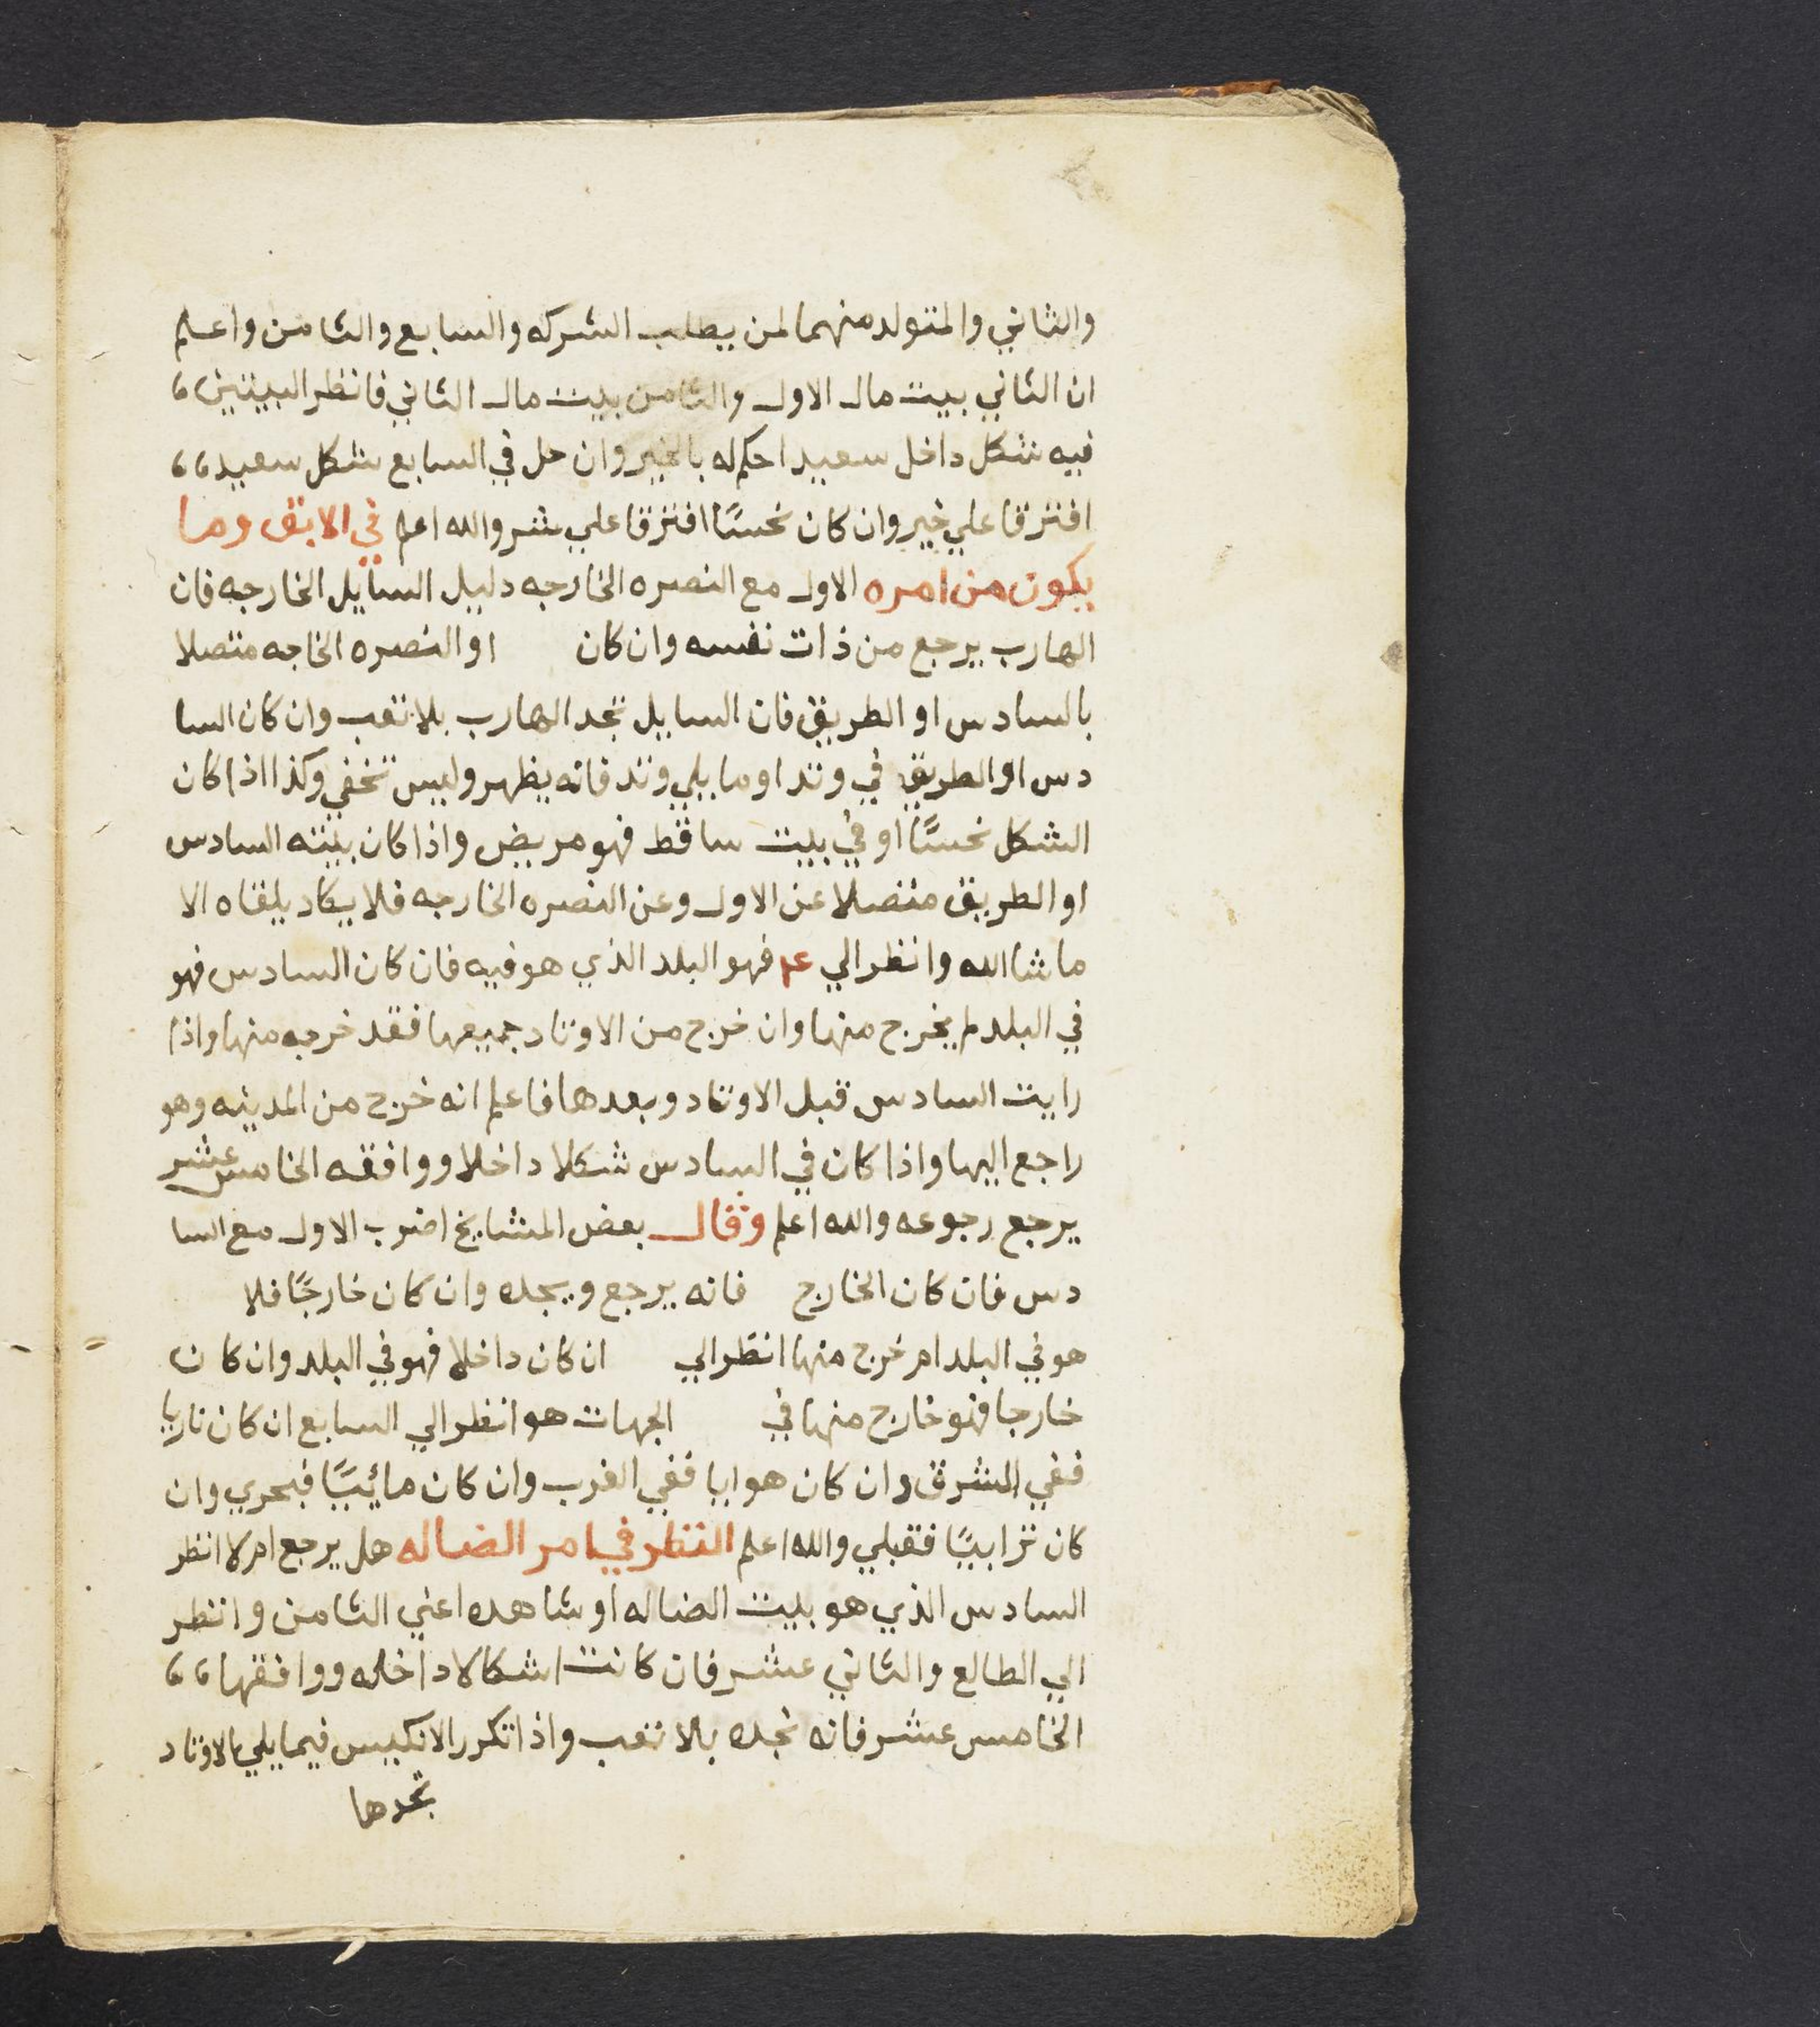 والثاني والمتولد منهما لمن يطلب الشركه والسابع والثامن واعلم
ان الثاني بيت مال الاول والثامن بيت مال الثاني فانظر البيتين،
فيه شكل داخل سعيد احكم له بالخير وان حل في السابع شكل سعيد،،
افترقا علي خير وان كان نحسًا افترقا علي شر والله اعلم في الابق وما
يكون من امره الاول مع النصره الخارجه دليل السايل الخارجه فان
الهارب يرجع من ذات نفسه وان كان او النصره الخاجه متصلا
بالسادس او الطريق فان السايل تجد الهارب بلا تعب وان كان السا
دس او الطريق في وتد او ما يلي وتد فانه يظهر وليس تخفي وكذا اذا كان
الشكل نحسًا او في بيت ساقط فهو مريض واذا كان بيته السادس
او الطريق منفصلا عن الاول وعن النصره الخارجه فلا يكاد يلقاه الا
ماشاالله وانظر الي فهو البلد الذي هو فيه فان كان السادس فهو
في البلد لم يخرج منها وان خرج من الاوتاد جميعها فقد خرج منها واذا
رايت السادس قبل الاوتاد وبعدها فاعلم انه خرج من المدينه وهو
راجع اليها واذا كان في السادس شكلا داخلا ووافقه الخامس عشر
يرجع رجوعه والله اعلم وقال بعض المشايخ اضرب الاول مع السا
دس فان كان الخارج فانه يرجع ويجده وان كان خارجًا فلا
هو في البلد ام خرج منها انظر الي ان كان داخلا فهو في البلد وان كان
خارجا فهو خارج منها في الجهات هو انظر الي السابع ان كان ناريا
ففي المشرق وان كان هوايا ففي الغرب وان كان مائيًا فبحري وان
كان ترابيًا فقبلي والله اعلم النظر في امر الضاله هل يرجع ام لا انظر
السادس الذي هو بيت الضاله او شاهده اعني الثامن وانظر
الي الطالع والثاني عشر فان كانت اشكالا داخله ووافقها،،
الخامس عشر فانه تجده بالا تعب واذا تكرر الانكيس فيما يلي الاوتاد
تجدها